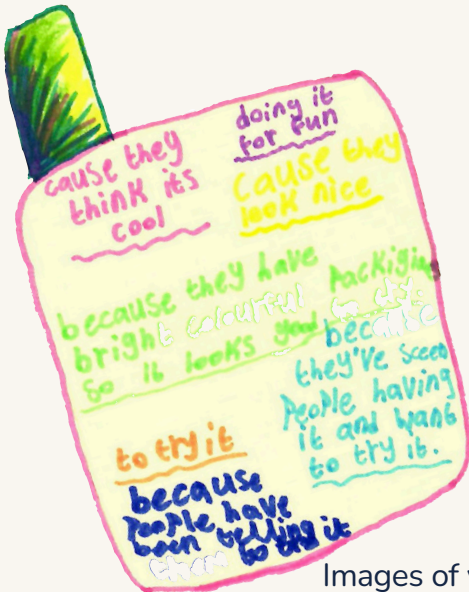 cause they
think its
cool
doing it
for fun
cause they
look nice
because they have
bright colourful Packiging
so it looks good to try.
because
they've sceen
PeoPle having
it and want
to try it.
to try it
because
PeoPle have
been telling
them to try it
Images of